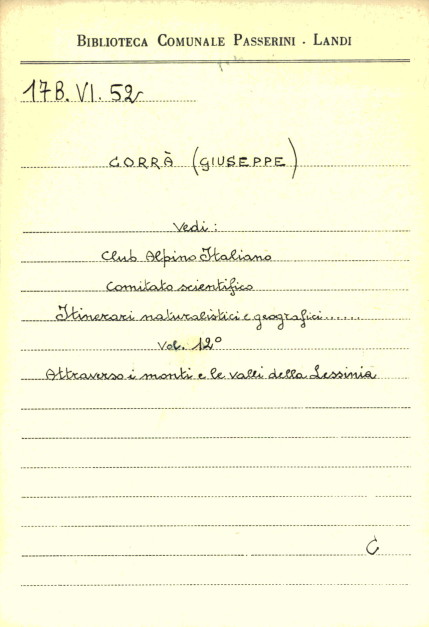 BIBLIOTECA COMUNALE PASSERINI - LANDI
17B. VI. 52
CORRÀ (GIUSEPPE)
Vedi:
Club Alpino Italiano
Comitato scientifico
Itinerari naturalistici e geografici......
Vol. 12°
Attraverso i monti e le valli della Lessinia
C